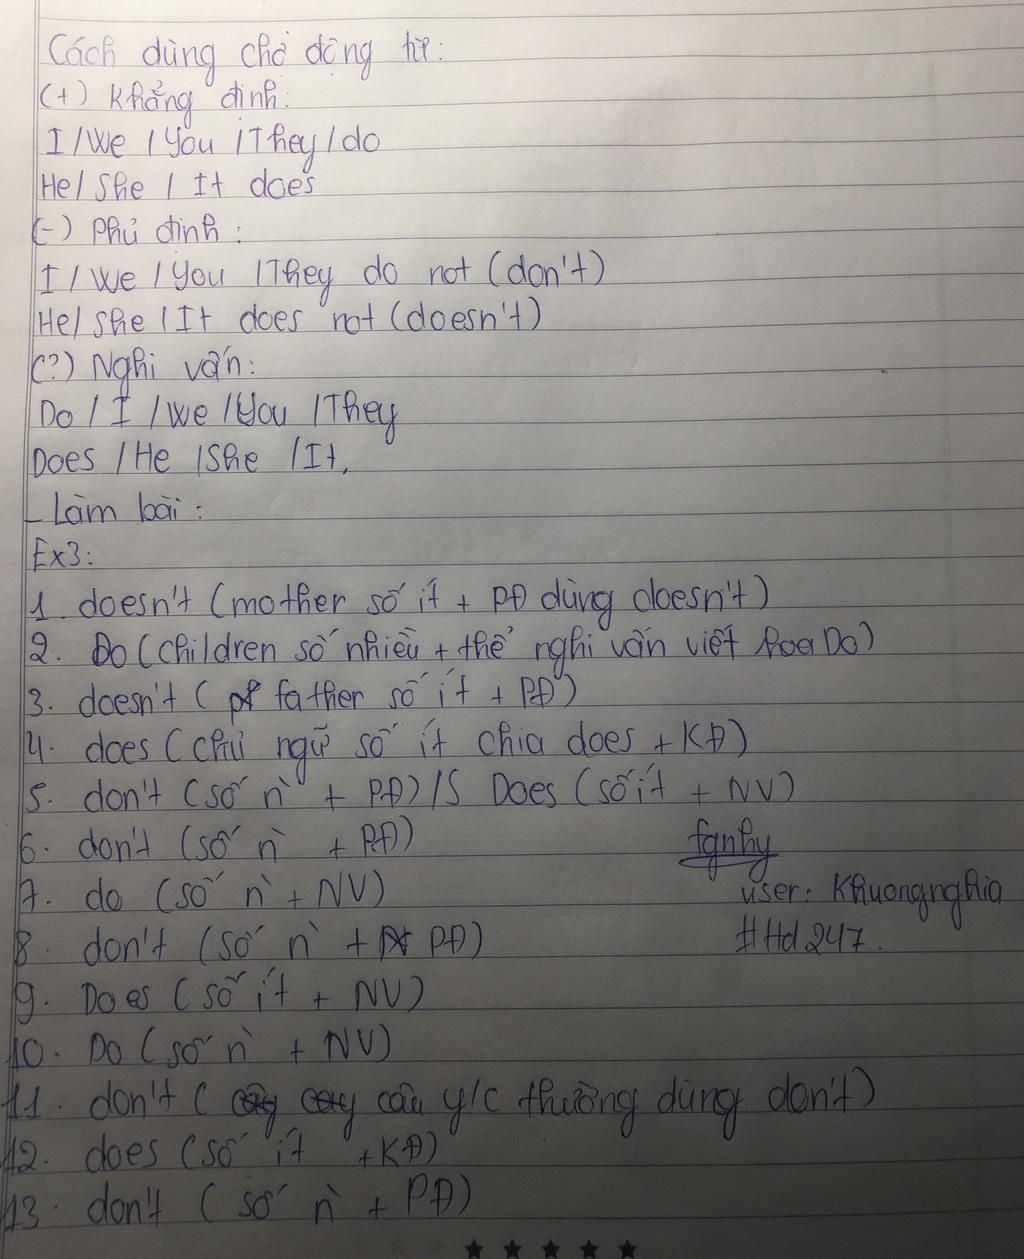 Cách dùng chợ động từ:
(+) Khẳng định:
I/We/You/They/do
He/She/It does
(-) Phủ định:
I/We/You/They do not (don't)
He/She/It does not (doesn't)
(?) Nghi vấn:
Do/I/We/You/They
Does/He/She/It.
- Làm bài:
Ex3:
1. doesn't (mother số ít + PĐ dùng doesn't)
2. Do (children số nhiều + thể nghi vấn viết hoa Do)
3. doesn't (father số ít + PĐ)
4. does (chủ ngữ số ít chia does + KĐ)
5. don't (số n` + PĐ)/S Does (số ít + NV)
6. don't (số n` + PĐ)
fgnhy
7. do (số n` + NV)
user: Khuongnghia
8. don't (số n` + PĐ)
#Hd247.
9. Does (số ít + NV)
10. Do (số n` + NV)
11. don't (câu y/c thường dùng don't)
12. does (số ít + KĐ)
13. don't (số n` + PĐ)